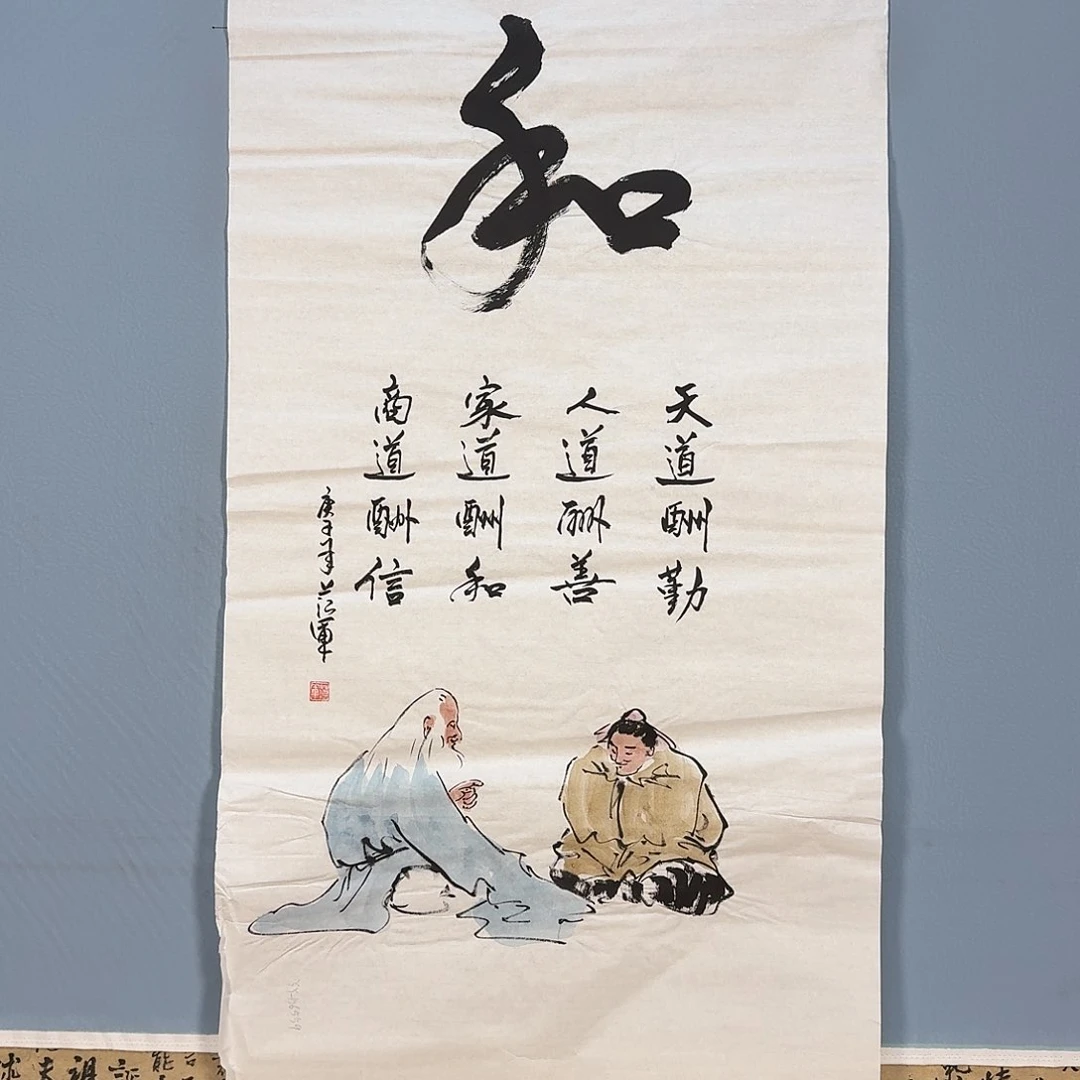 和
天道酬勤
人道酬善
家道酬和
商道酬信
庚子年 范軍